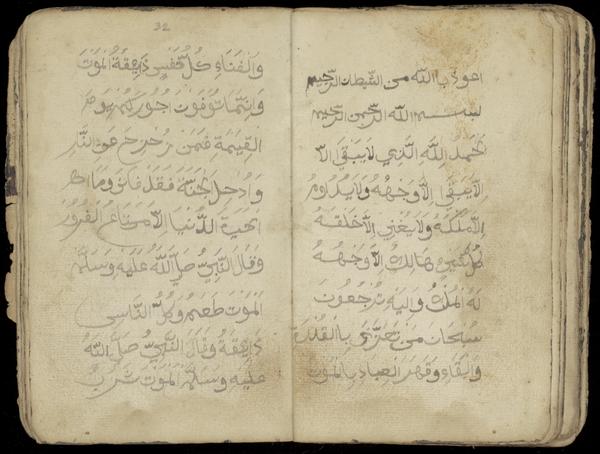 اعوذ باالله من الشيطان الرجيم
بسم الله الرحمن الرحيم
الحمد لله الذي لا يبقي الا
لا يبقي الا وجهه ولا يدوم
الا ملكه ولا يغني الا خلقه
كل شيء هالك الا وجهه
له الملك واليه ترجعون
سبحان من تعزّز باالقدرة
والبقاء وقهر العباد باالموت
32
والفناء كل نفس ذايقة الموت
وانما توفون اجوركم يوم
القيمة فمن زحزح عن النار
وادخل الجنة فقد فاز وما
الحيوة الدنيا الا متاع الغرور
وقال النبي صلّ الله عليه وسلم
الموت طعم وكل الناس
ذايقة وقال النبي صلّ الله
عليه وسلم الموت شرب